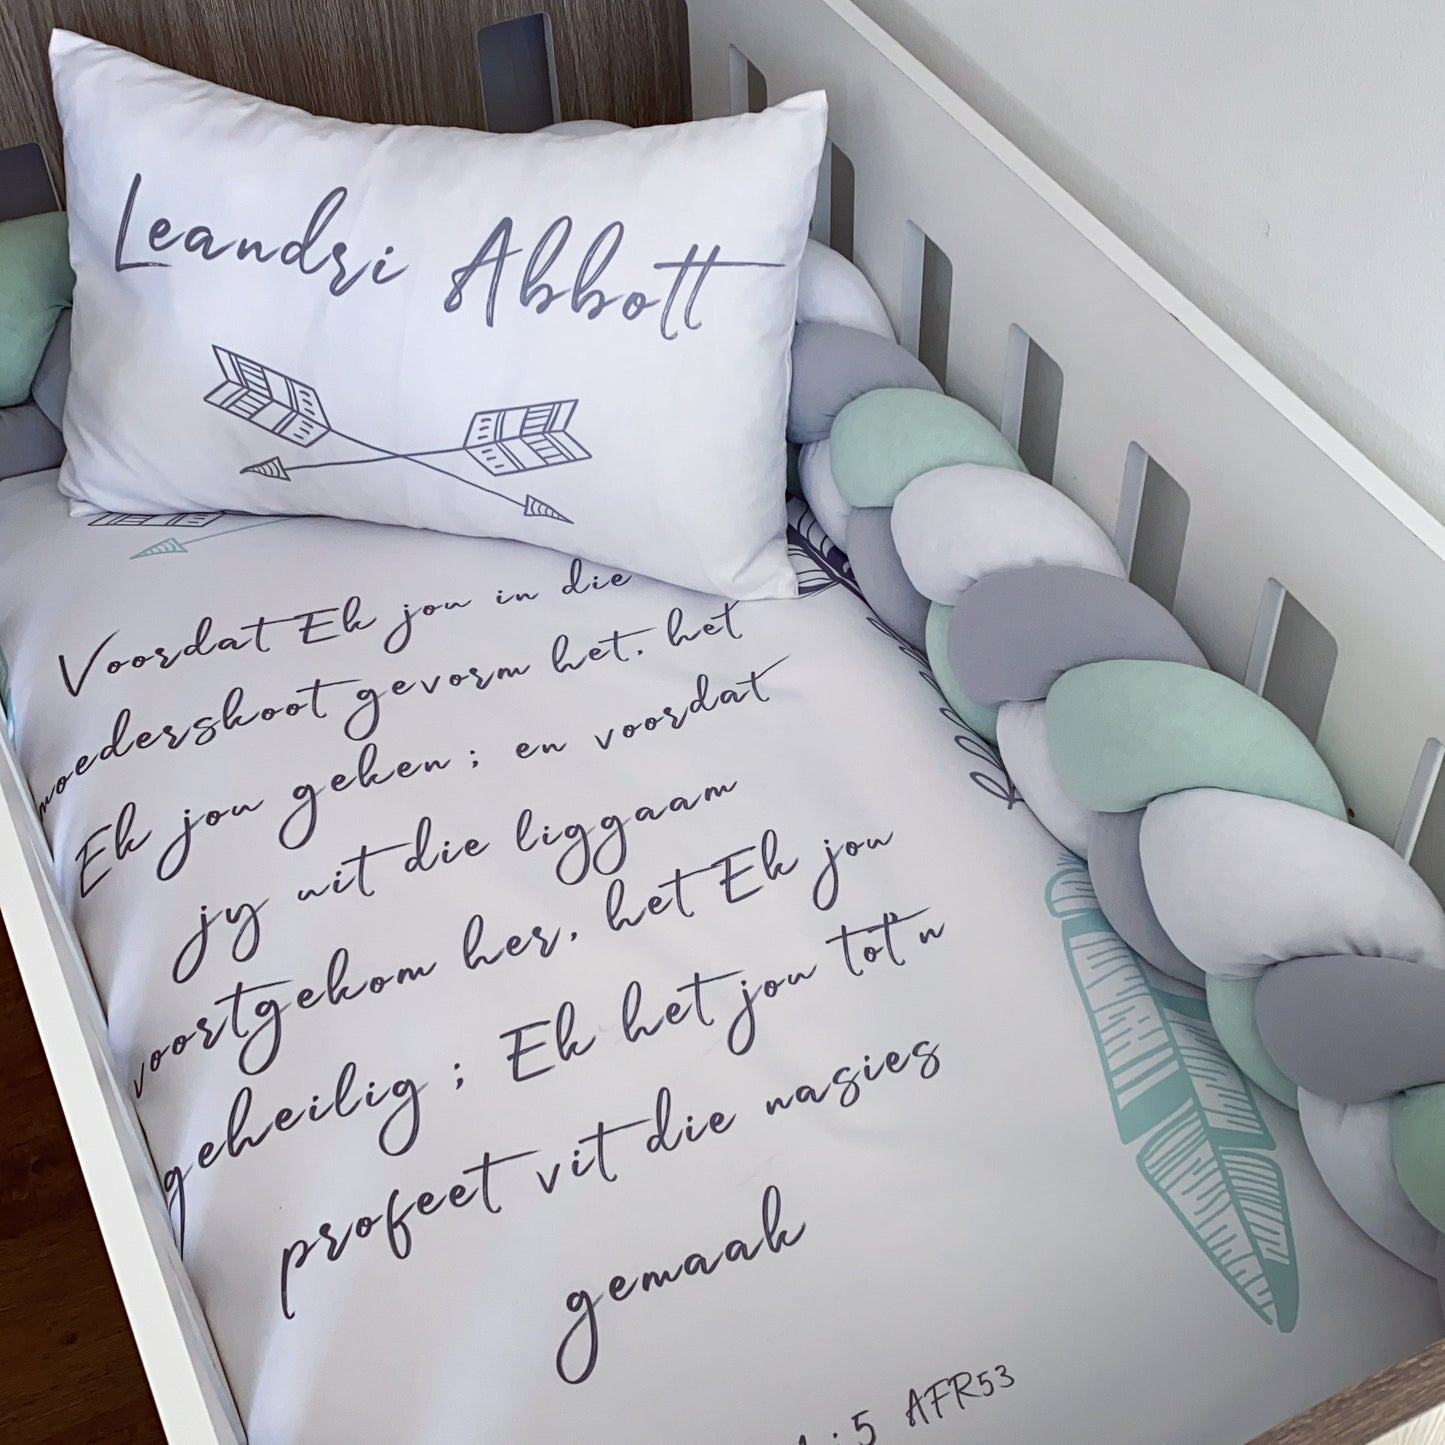 Leandri Abbott
Voordat Ek jou in die
moederskoot gevorm het, het
Ek jou geken ; en voordat
jy uit die liggaam
voortgekom her, het Ek jou
geheilig ; Ek het jou tot 'n
profeet vit die nasies
gemaak
:5 AFR53